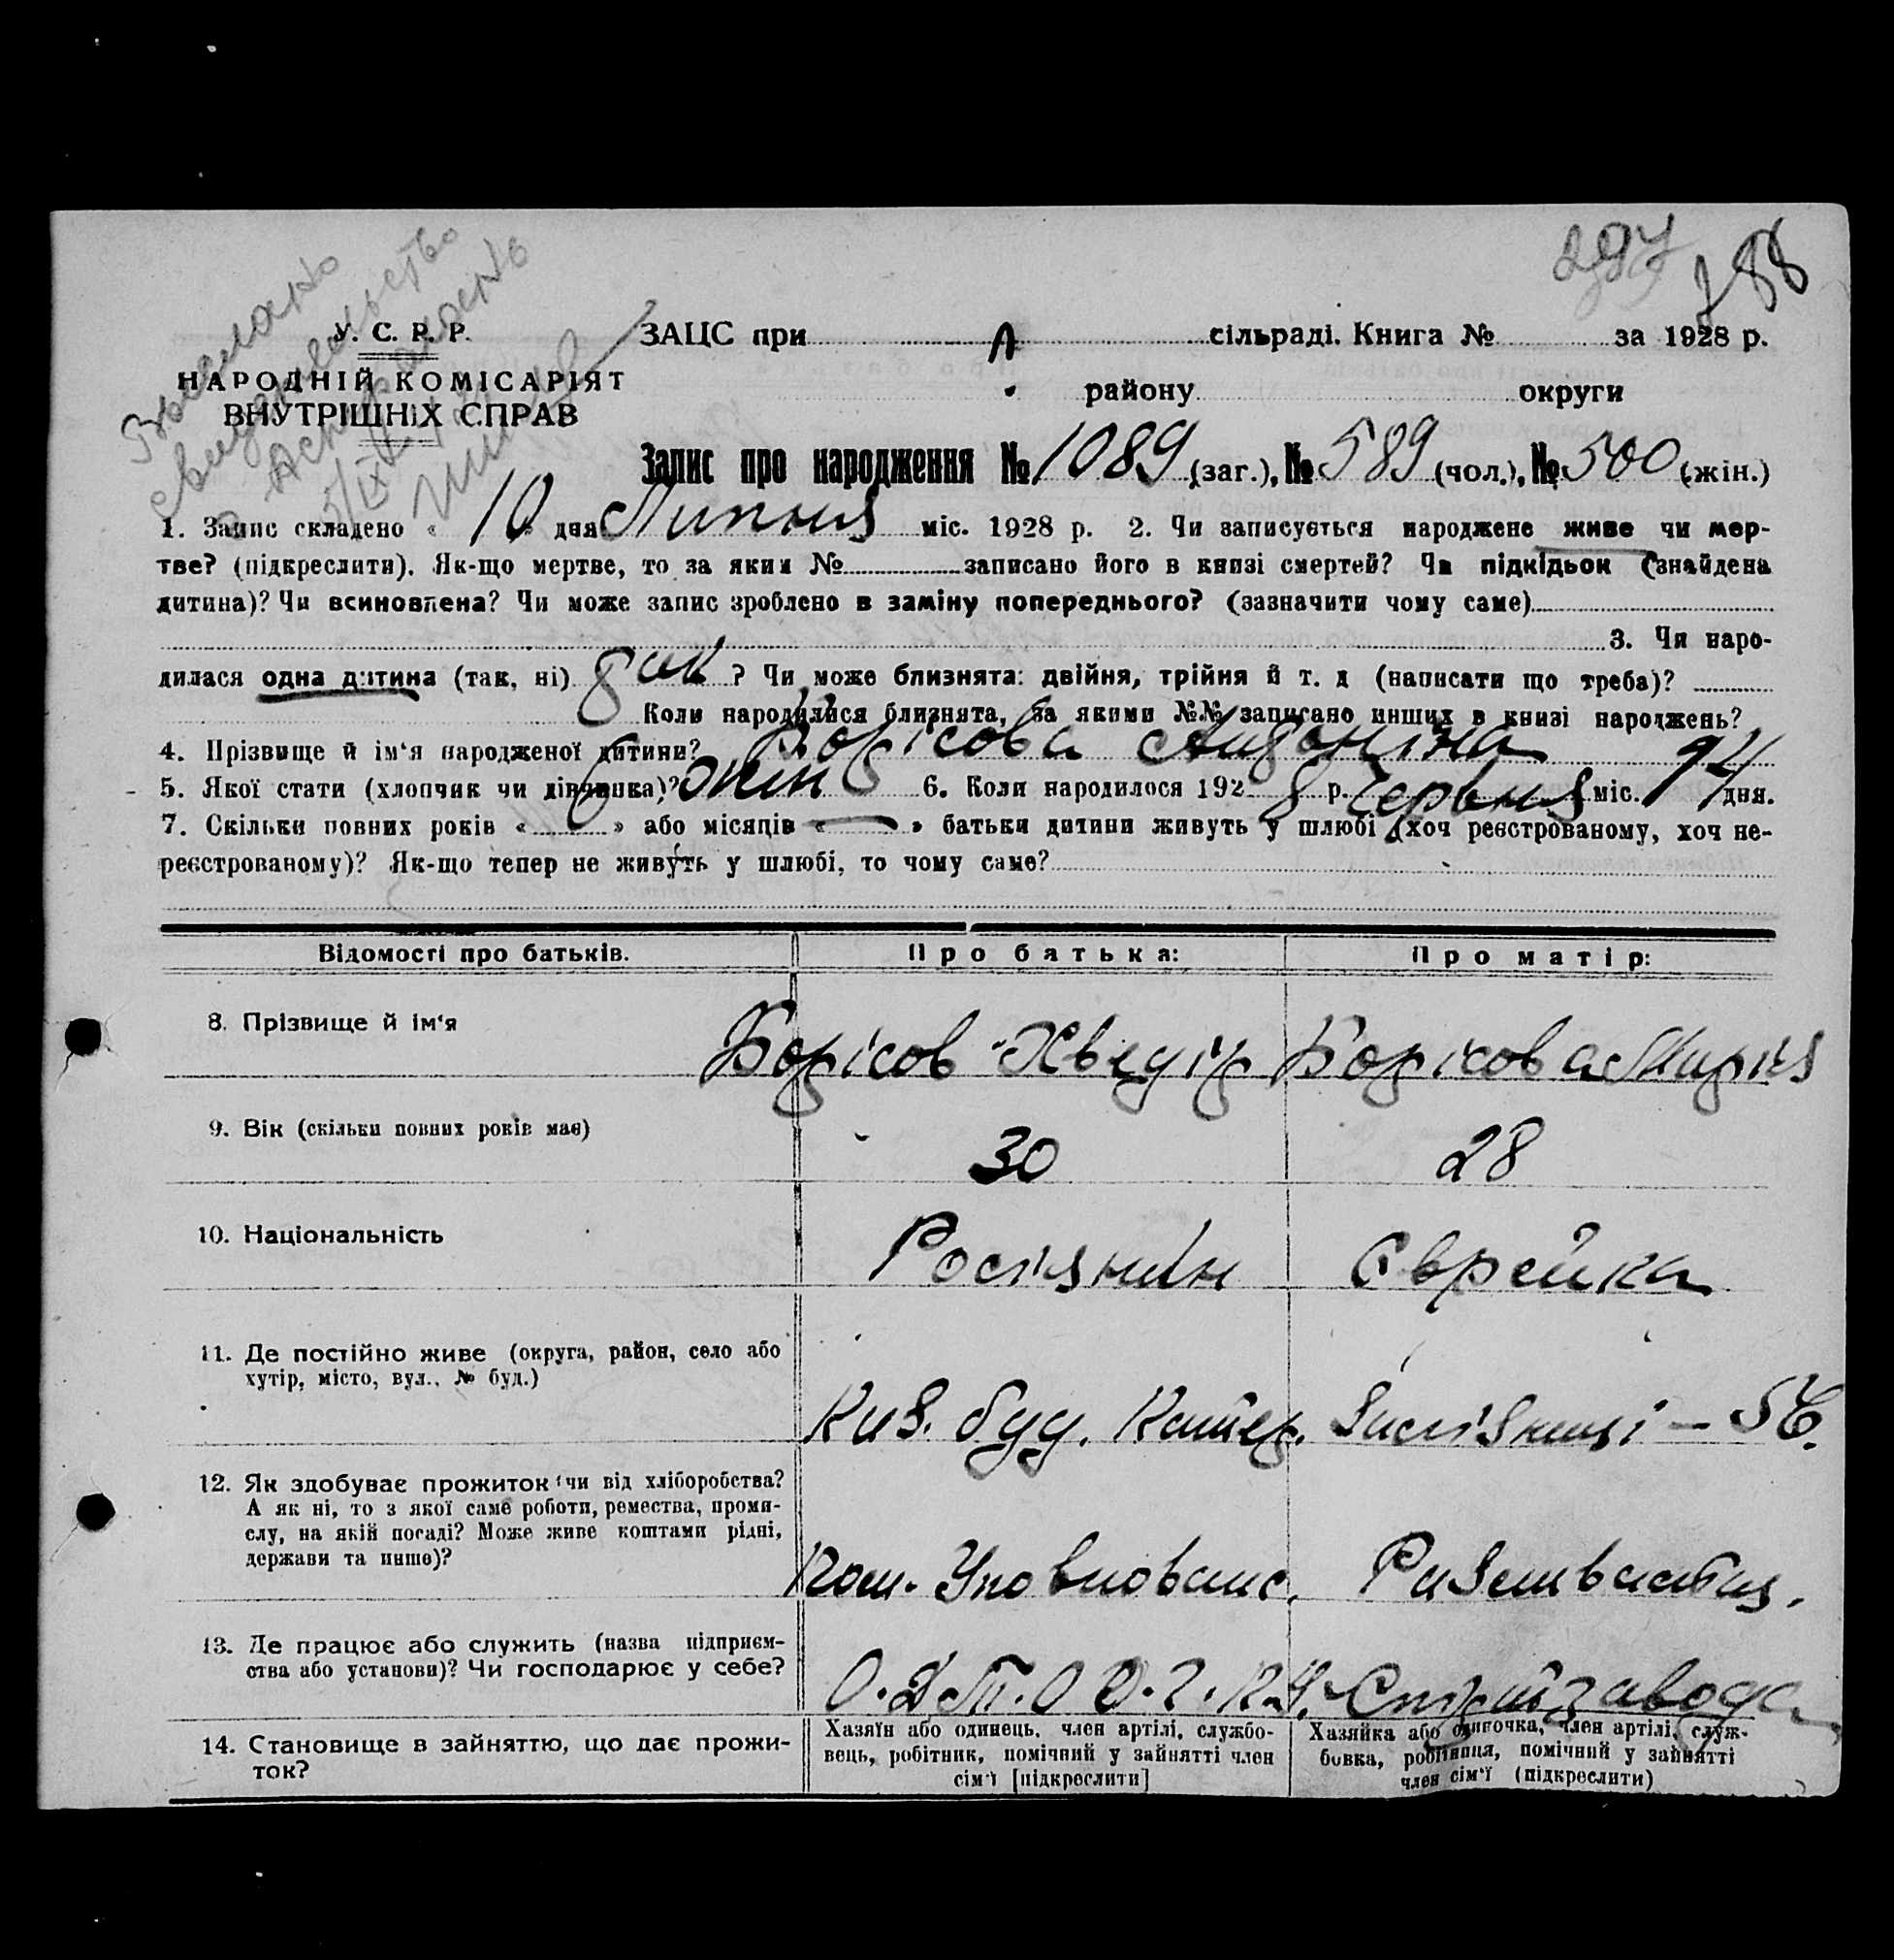 297
288
Выслано
свидетельство
в Астрахань
5/IX
У. С. Р. Р.
НАРОДНІЙ КОМІСАРІЯТ
ВНУТРІШНІХ СПРАВ
ЗАЦС при сільраді. Книга № за 1928 р.
району округи
Запис про народження № 1089 (заг.), № 589 (чол.), № 500 (жін.)
1. Запис складено « 10 » дня Липня міс. 1928 р. 2. Чи записується народжене живе чи мер-
тве? (підкреслити). Як-що мертве, то за яким № записано його в книзі смертей? Чи підкідьок (знайдена
дитина)? Чи всиновлена? Чи може запис зроблено в заміну попереднього? (зазначити чому саме)
3. Чи наро-
дилася одна дитина (так, ні) ? Чи може близнята: двійня, трійня й т. д (написати що треба)?
Коли народилися близнята, за якими №№ записано инших в книзі народжень?
4. Прізвище й ім'я народженої дитини? Борісова
5. Якої стати (хлопчик чи дівчинка)? жін 6. Коли народилося 1928 р. Червня міс. дня.
7. Скільки повних років « » або місяців « — » батьки дитини живуть у шлюбі (хоч реєстрованому, хоч не-
реєстрованому)? Як-що тепер не живуть у шлюбі, то чому саме?
Відомості про батьків. Про батька: Про матір:
8. Прізвище й ім'я Борісов Хведір Борісова Марія
9. Вік (скільки повних років має) 30 28
10. Національність Росіянин Єврейка
11. Де постійно живе (округа, район, село або
хутір, місто, вул., № буд.)
буд.
12. Як здобуває прожиток чи від хліборобства?
А як ні, то з якої саме роботи, ремества, проми-
слу, на якій посаді? Може живе коштами рідні,
держави та инше)?
Пом. Уповноваж.
13. Де працює або служить (назва підприєм-
ства або установи)? Чи господарює у себе?
14. Становище в зайняттю, що дає прожи-
ток?
Хазяїн або одинець, член артілі, службо-
вець, робітник, помічний у зайнятті член
сім'ї [підкреслити]
Хазяйка або одиночка, член артілі, служ-
бовка, робітниця, помічний у зайнятті
член сім'ї (підкреслити)